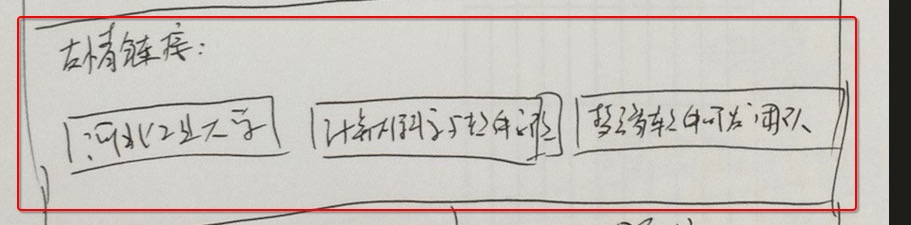 友情链接：
河北工业大学 计算机科学与软件学院 梦云智软件开发团队